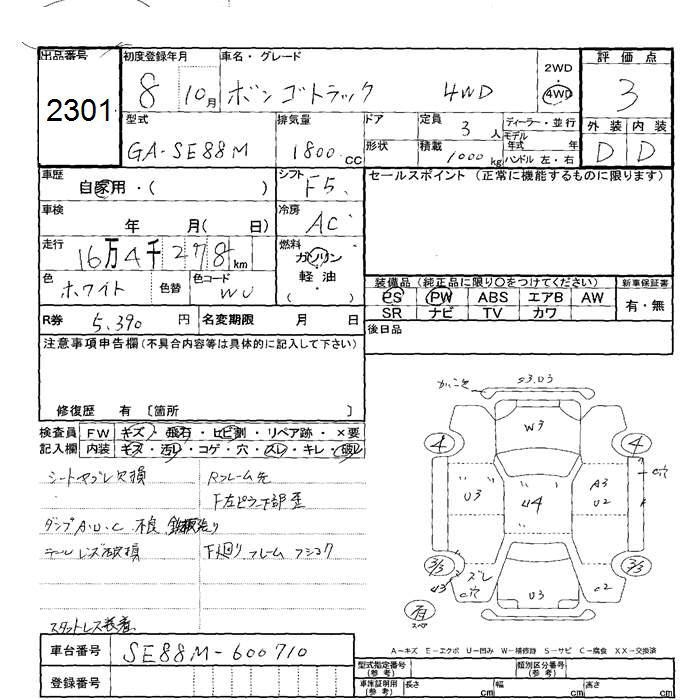 出品番号 初度登録年月 車名・グレード 2WD 評価点
2301 8 10月 ボンゴトラック 4WD ・ 4WD 3
型式 排気量 ドア 定員 3人 ディーラー・並行 外装 内装
GA-SE88M 1800cc 形状 積載 1000kg モデル年式 年 ハンドル 左・右 D D
車歴 自家用・( ) シフト F5 セールスポイント (正常に機能するものに限ります)
車検 年 月( 日) 冷房 AC
走行 16万4千278km 燃料 ガソリン・軽油 ( )
色 ホワイト 色替 色コード WU 装備品 (純正品に限り○をつけてください) 新車保証書
PS PW ABS エアB AW 有・無
R券 5,390円 名変期限 月 日 SR ナビ TV カワ
注意事項申告欄 (不具合内容等は具体的に記入して下さい) 後日品
修復歴 有 〔箇所 〕
検査員 FW キズ・飛石・ヒビ割・リペア跡・×要
記入欄 内装 キズ・汚レ・コゲ・穴・スレ・キレ・破レ
シートヤブレ欠損 Rフレーム先
F左ピラー下部歪
ダンプA.O.C 不良
テールレンズ破損 下廻りフレーム フショク
スタットレス装着
S3.U3
W3
4 4
U3 U4 A3 U2 穴
3/3 3/3
U3 穴 ズレ U3 C2
有 スペア
A-キズ E-エクボ U-凹み W-補修跡 S-サビ C-腐食 XX-交換済
車台番号 SE88M-600710 型式指定番号 (参考) 類別区分番号 (参考)
登録番号 車庫証明用 (参考) 長さ cm 幅 cm 高さ cm